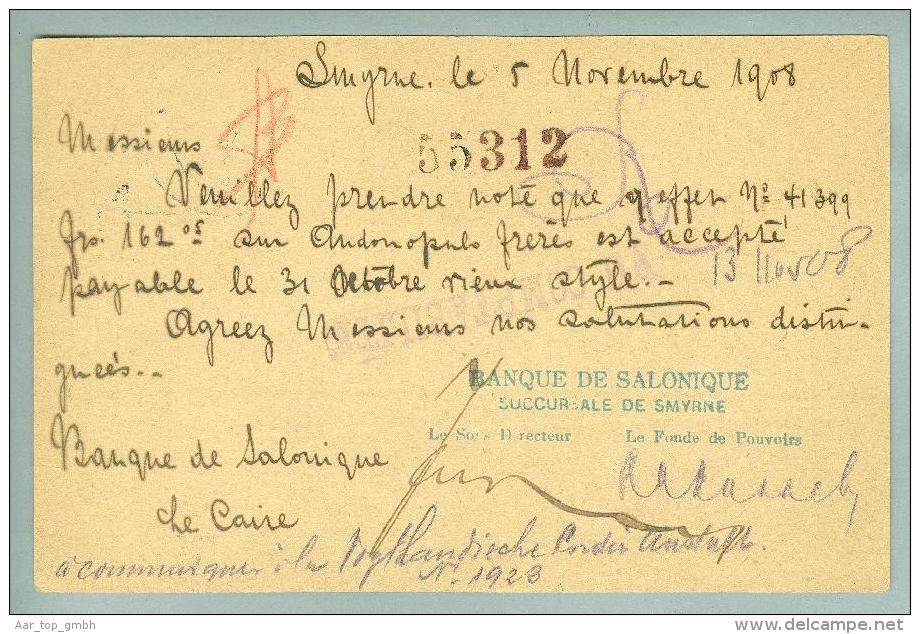 Smyrne, le 5 Novembre 1908
Messieurs
55312
Veuillez prendre note que l'effet No 41399
frs. 162.05 sur Andonopulo frères est accepté
payable le 31 Octobre vieux style.-
13 Nov 08
Agreez Messieurs nos salutations distin-
guées.-
BANQUE DE SALONIQUE
SUCCURSALE DE SMYRNE
Le Sous Directeur Le Fondé de Pouvoirs
Banque de Salonique
Le Caire
à communiquer à la Vogtlandische
No 1923
Aar_top_gmbh
www.delcampe.net